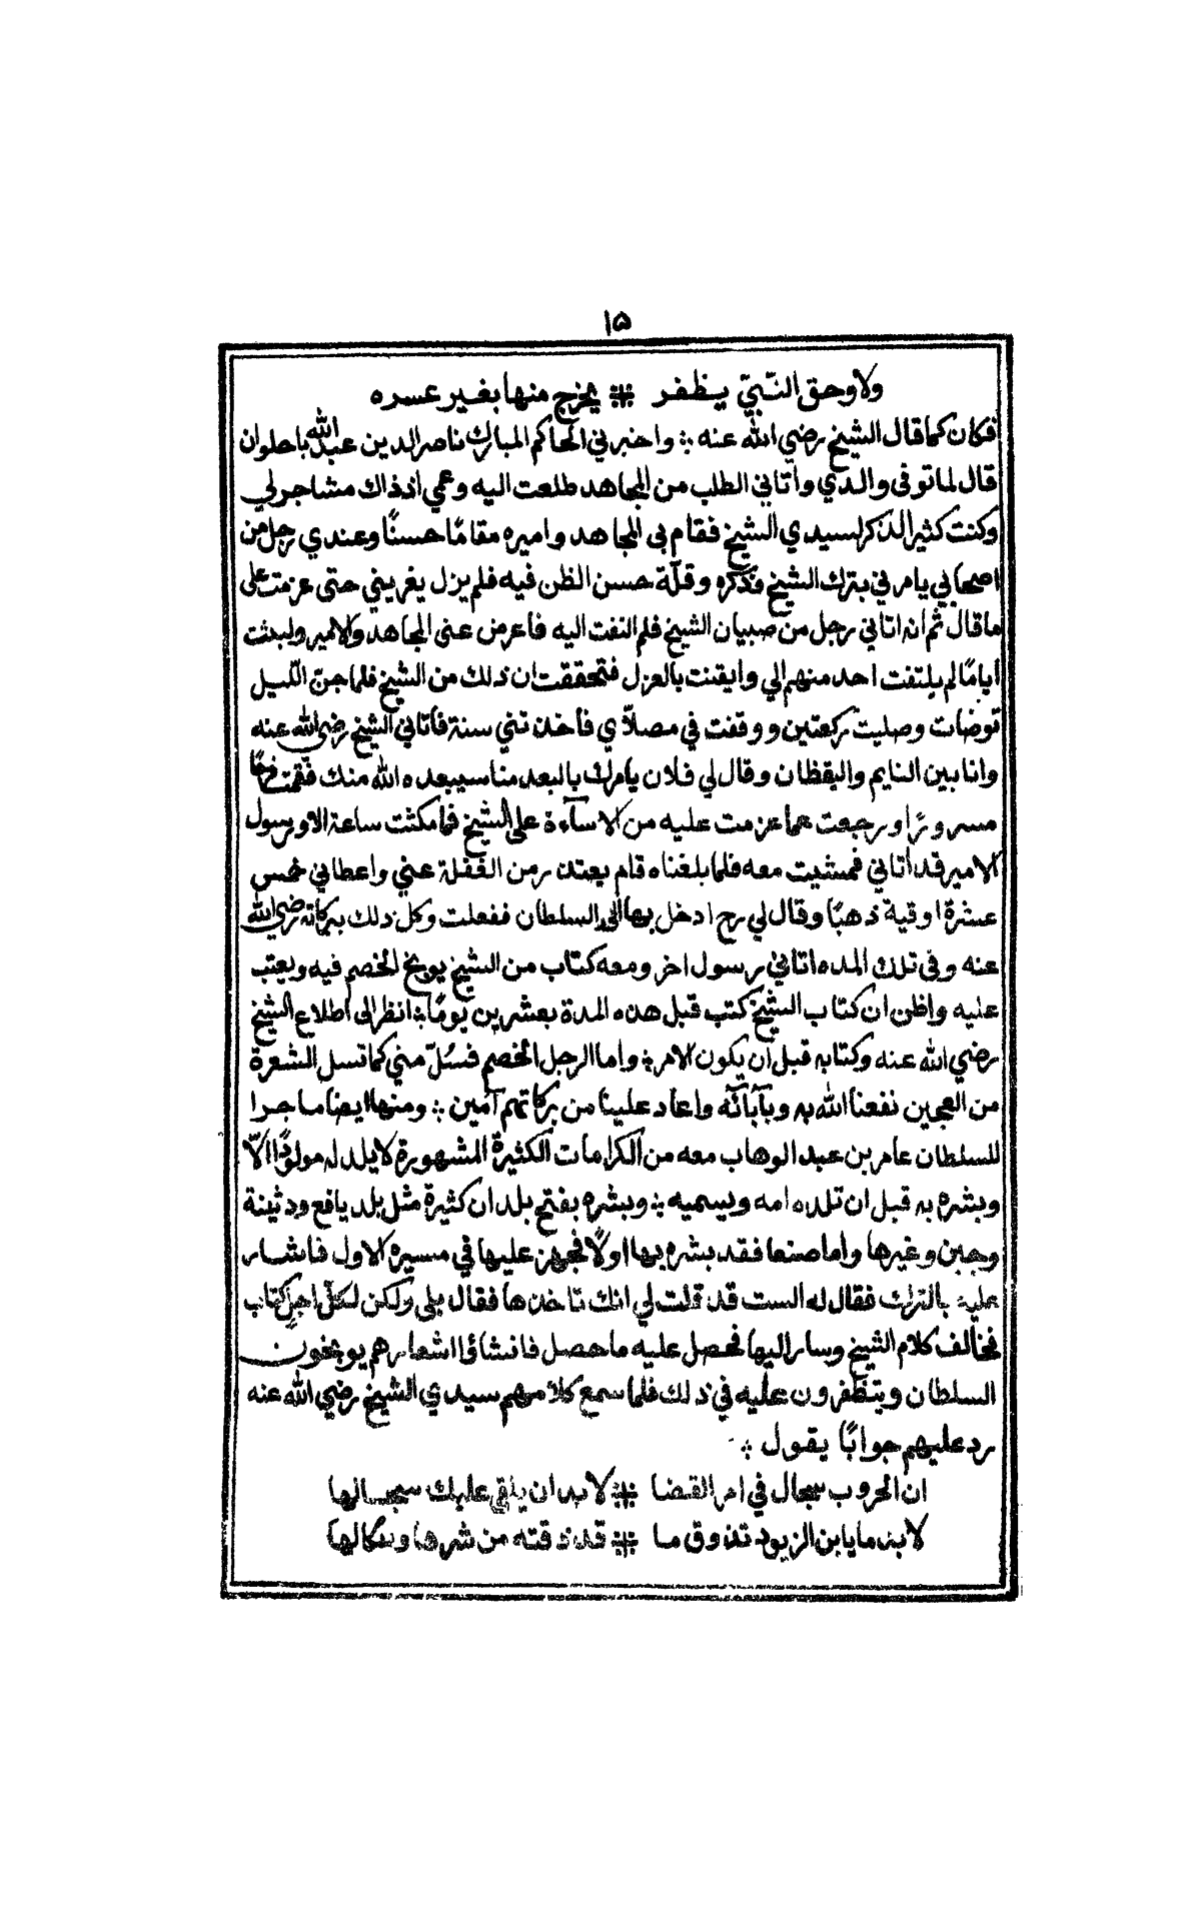 ١٥
ولا وحق النبيّ يظفر ⁂ يخرج منها بغير عسره
فكان كما قال الشيخ رضي الله عنه ؞ واخبرني الحاكم المبارك ناصر الدين عبدالله باحلوان
قال لما توفى والدي واتاني الطلب من المجاهد طلعت اليه وعمي اذذاك مشاجرلي
وكنت كثير الذكر لسيدي الشيخ فقام بى المجاهد واميره مقامًا حسنًا وعندي رجل من
اصحابي يامرني بترك الشيخ وذكره وقلّة حسن الظن فيه فلم يزل يغريني حتى عزمت على
ما قال ثم انه اتاني رجل من صبيان الشيخ فلم التفت اليه فاعرض عنى المجاهد والامير ولبثت
ايامًا لم يلتفت احد منهم الي وايقنت بالعزل فتحققت ان ذلك من الشيخ فلما جنّ اللّيل
توضات وصليت ركعتين ووقفت في مصلاّي فاخذتني سنة فاتاني الشيخ رضي الله عنه
وانا بين النايم واليقظان وقال لي فلان يامرك بالبعد منا سيبعده الله منك فقمت فرحًا
مسرورًا ورجعت عما عزمت عليه من الاسآءة على الشيخ فما مكثت ساعة الا ورسول
الامير قد اتاني فمشيت معه فلما بلغناه قام يعتذر من الغفلة عني واعطاني خمس
عشرة اوقية ذهبًا وقال لي رح ادخل بها الى السلطان ففعلت وكل ذلك ببركاته رضي الله
عنه وفى تلك المده اتاني رسول اخر ومعه كتاب من الشيخ يوبخ الخصم فيه ويعتب
عليه واظن ان كتاب الشيخ كتب قبل هذه المدة بعشرين يومًا ؞ انظر الى اطلاع الشيخ
رضي الله عنه وكتابه قبل ان يكون الامر ؞ واما الرجل الخصم فسُلّ مني كما تسل الشعرة
من العجين نفعنا الله به وبآبائه واعاد علينا من بركاتهم آمين ؞ ومنها ايضا ما جرا
للسلطان عامر بن عبد الوهاب معه من الكرامات الكثيرة المشهورة لا يلد له مولودًا الاّ
وبشره به قبل ان تلده امه ويسميه ؞ وبشره بفتح بلدان كثيرة مثل بلد يافع ودثينة
وجبن وغيرها واما صنعا فقد بشره بها اولًا فجهز عليها في مسيره الاول فاشار
عليه بالترك فقال له الست قد قلت لي انك تاخذها فقال بلى ولكن لكل اجل كتاب
فخالف كلام الشيخ وسار اليها فحصل عليه ما حصل فانشاؤا اشعارهم يوبخون
السلطان ويتظفرون عليه في ذلك فلما سمع كلامهم سيدي الشيخ رضي الله عنه
رد عليهم جوابًا يقول ؞
ان الحروب سجال في امر القضا ⁂ لا بد ان يلقي عليك سجالها
لا بد ما يا بن الزيود تذوق ما ⁂ قد ذقته من شرها ونكالها